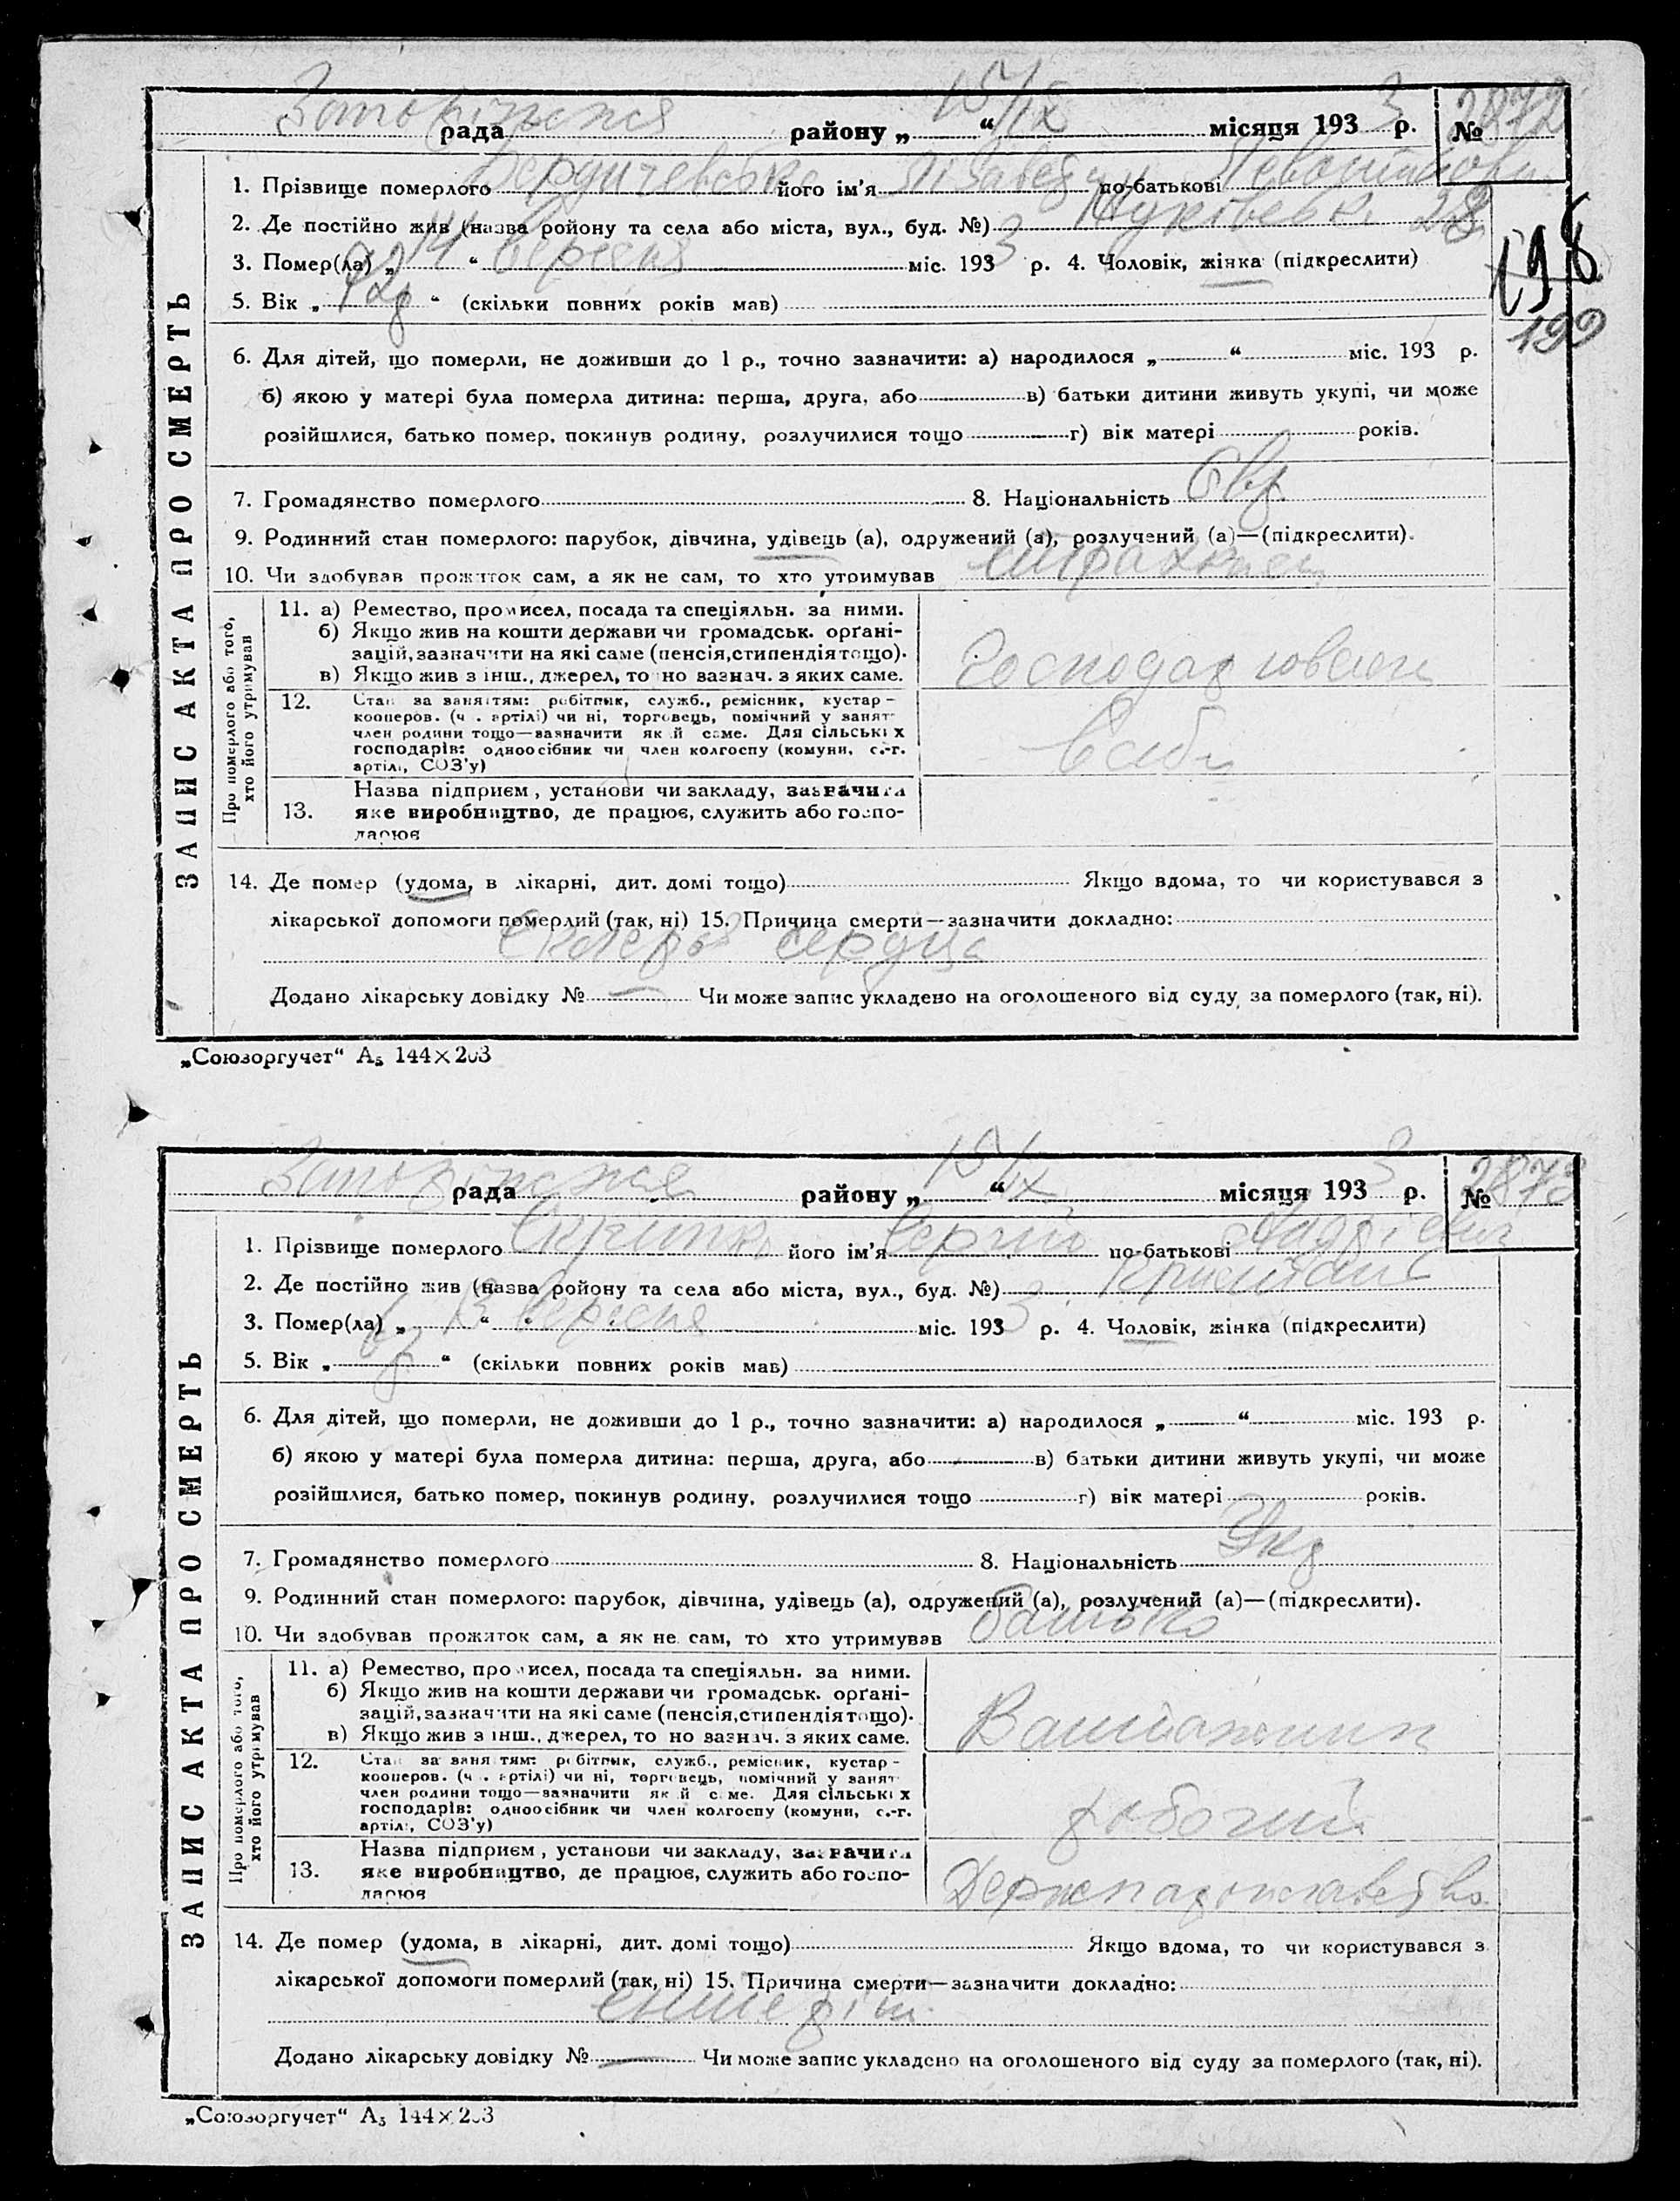 15/IX 3 2872
рада району „ “ місяця 193 р. №
1. Прізвище померлого Бердичевська його ім’я по-батькові
2. Де постійно жив (назва ройону та села або міста, вул., буд. №) 28
3. Помер(ла) „ 14 “ вересня міс. 193 3 р. 4. Чоловік, жінка (підкреслити)
5. Вік „ 72 р “ (скільки повних років мав)
198
199
6. Для дітей, що померли, не доживши до 1 р., точно зазначити: а) народилося „ “ міс. 193 р.
б) якою у матері була померла дитина: перша, друга, або в) батьки дитини живуть укупі, чи може
розійшлися, батько помер, покинув родину, розлучилися тощо г) вік матері років.
7. Громадянство померлого 8. Національність Євр
9. Родинний стан померлого: парубок, дівчина, удівець (а), одружений (а), розлучений (а)—(підкреслити).
10. Чи здобував прожиток сам, а як не сам, то хто утримував
ЗАПИС АКТА ПРО СМЕРТЬ
Про померлого або того, хто його утримував
11. а) Ремество, промисел, посада та спеціяльн. за ними.
б) Якщо жив на кошти держави чи громадськ. орґані-
зацій, зазначити на які саме (пенсія, стипендія тощо).
в) Якщо жив з інш., джерел, то но вазнач. з яких саме.
12. Стан за заняттям: робітник, служб., ремісник, кустар-
кооперов. (ч . артілі) чи ні, торговець, помічний у занят
член родини тощо—зазначити як й саме. Для сільськ х
господарів: одноосібник чи член колгоспу (комуни, с.-г.
артілі, СОЗ’у)
13. Назва підприєм , установи чи закладу, зазначити
яке виробництво, де працює, служить або госпо-
дарює
14. Де помер (удома, в лікарні, дит. домі тощо) Якщо вдома, то чи користувався з
лікарської допомоги померлий (так, ні) 15. Причина смерти—зазначити докладно:
сердца
Додано лікарську довідку № — Чи може запис укладено на оголошеного від суду за померлого (так, ні).
„Союзоргучет“ А₅ 144×203
15/IX 3 2873
рада району „ “ місяця 193 р. №
1. Прізвище померлого його ім’я Сергій по-батькові Андрієвич
2. Де постійно жив (назва ройону та села або міста, вул., буд. №)
3. Помер(ла) „ 13 “ вересня міс. 193 3 р. 4. Чоловік, жінка (підкреслити)
5. Вік „ “ (скільки повних років мав)
6. Для дітей, що померли, не доживши до 1 р., точно зазначити: а) народилося „ “ міс. 193 р.
б) якою у матері була померла дитина: перша, друга, або в) батьки дитини живуть укупі, чи може
розійшлися, батько помер, покинув родину, розлучилися тощо г) вік матері років.
7. Громадянство померлого 8. Національність Укр
9. Родинний стан померлого: парубок, дівчина, удівець (а), одружений (а), розлучений (а)—(підкреслити).
10. Чи здобував прожиток сам, а як не сам, то хто утримував батько
ЗАПИС АКТА ПРО СМЕРТЬ
Про померлого або того, хто його утримував
11. а) Ремество, промисел, посада та спеціяльн. за ними.
б) Якщо жив на кошти держави чи громадськ. орґані-
зацій, зазначити на які саме (пенсія, стипендія тощо).
в) Якщо жив з інш., джерел, то но вазнач. з яких саме.
Вантажник
12. Стан за заняттям: робітник, служб., ремісник, кустар-
кооперов. (ч . артілі) чи ні, торговець, помічний у занят
член родини тощо—зазначити як й саме. Для сільськ х
господарів: одноосібник чи член колгоспу (комуни, с.-г.
артілі, СОЗ’у)
робочий
13. Назва підприєм , установи чи закладу, зазначити
яке виробництво, де працює, служить або госпо-
дарює
14. Де помер (удома, в лікарні, дит. домі тощо) Якщо вдома, то чи користувався з
лікарської допомоги померлий (так, ні) 15. Причина смерти—зазначити докладно:
ентеріт
Додано лікарську довідку № — Чи може запис укладено на оголошеного від суду за померлого (так, ні).
„Союзоргучет“ А₅ 144×203